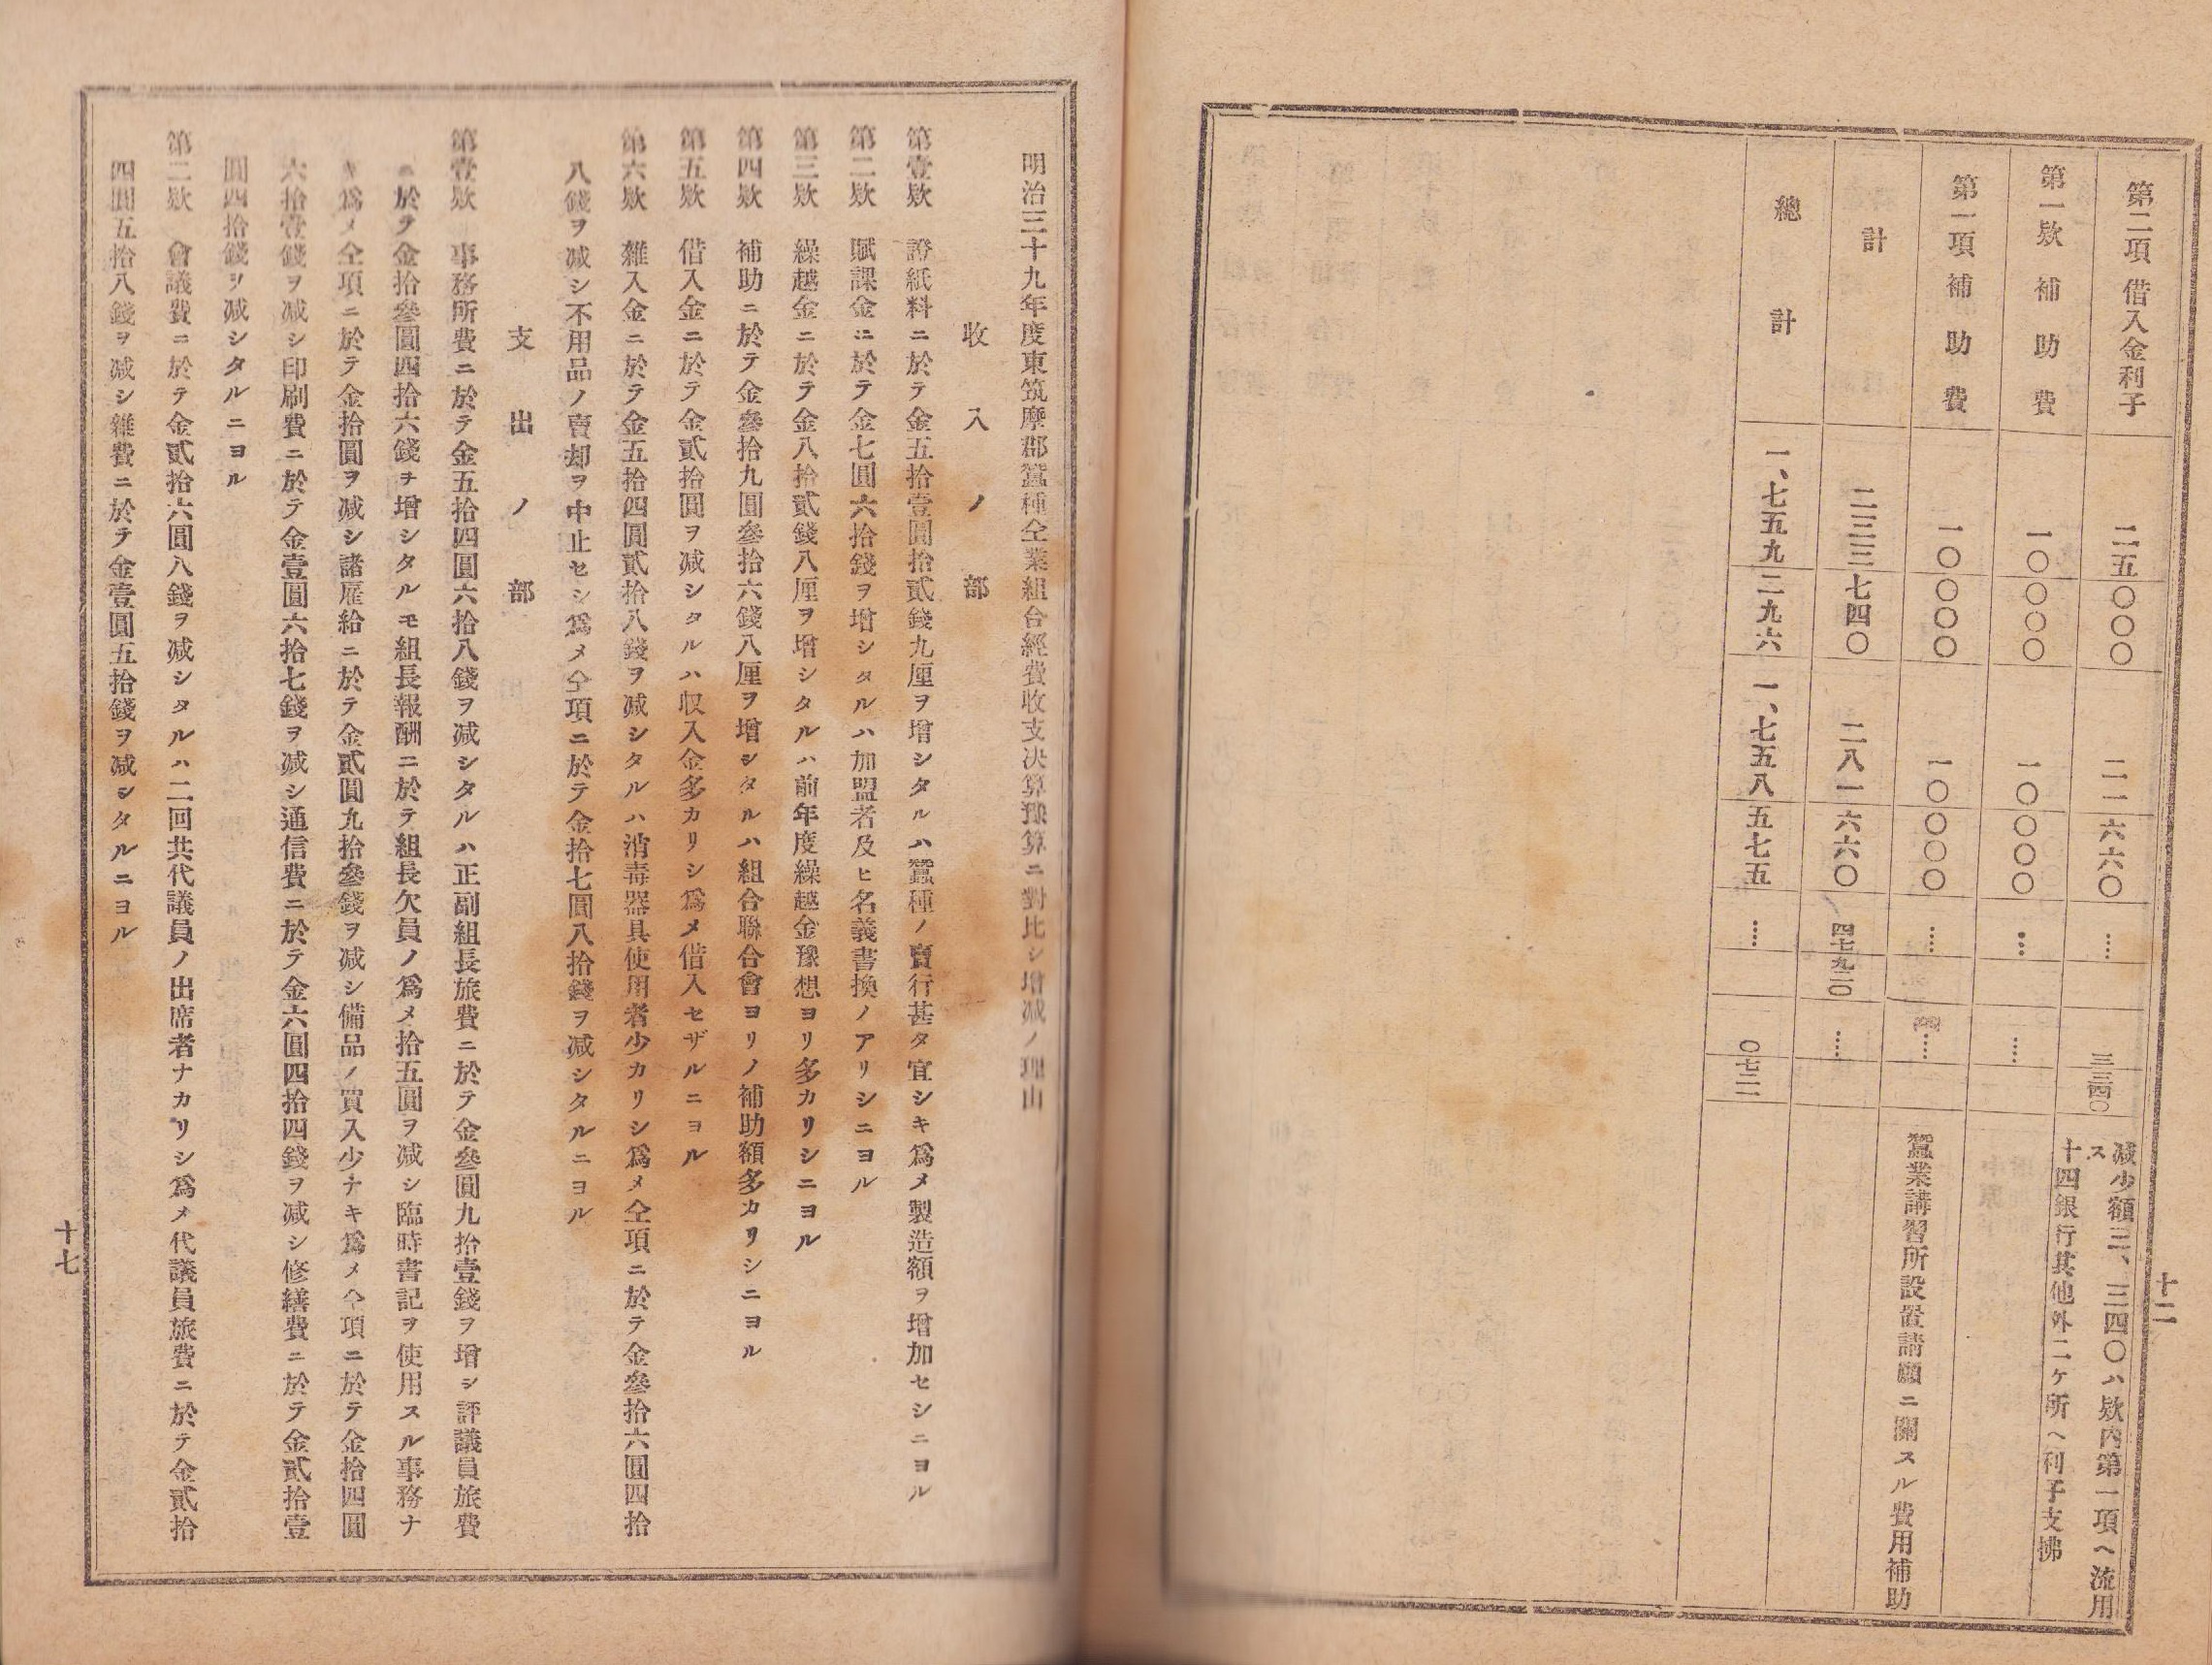 十二
第二項 借入金利子 二五〇〇〇 二一六六〇 …… 三三四〇 減少額三、三四〇ハ欵内第一項ヘ流用ス
十四銀行其他外二ケ所ヘ利子支拂
第一欵 補助費 一〇〇〇〇 一〇〇〇〇 …… ……
第一項 補助費 一〇〇〇〇 一〇〇〇〇 …… …… 蠶業講習所設置請願ニ關スル費用補助
計 二三三七四〇 二八一六六〇 四七九二〇 ……
總計 一、七五九二九六 一、七五八五七五 …… 〇七二一
明治三十九年度東筑摩郡蠶種仝業組合經費收支决算豫算ニ對比シ增减ノ理由
收入ノ部
第壹欵 證紙料ニ於テ金五拾壹圓拾貳錢九厘ヲ增シタルハ蠶種ノ賣行甚タ宜シキ爲メ製造額ヲ增加セシニヨル
第二欵 賦課金ニ於テ金七圓六拾錢ヲ增シタルハ加盟者及ヒ名義書換ノアリシニヨル
第三欵 繰越金ニ於テ金八拾貳錢八厘ヲ增シタルハ前年度繰越金豫想ヨリ多カリシニヨル
第四欵 補助ニ於テ金參拾九圓參拾六錢八厘ヲ增シタルハ組合聯合會ヨリノ補助額多カリシニヨル
第五欵 借入金ニ於テ金貳拾圓ヲ减シタルハ収入金多カリシ爲メ借入セザルニヨル
第六欵 雜入金ニ於テ金五拾四圓貳拾八錢ヲ减シタルハ消毒器具使用者少カリシ爲メ仝項ニ於テ金參拾六圓四拾
八錢ヲ减シ不用品ノ賣却ヲ中止セシ爲メ仝項ニ於テ金拾七圓八拾錢ヲ减シタルニヨル
支出ノ部
第壹欵 事務所費ニ於テ金五拾四圓六拾八錢ヲ减シタルハ正副組長旅費ニ於テ金參圓九拾壹錢ヲ增シ評議員旅費
ニ於テ金拾參圓四拾六錢ヲ增シタルモ組長報酬ニ於テ組長欠員ノ爲メ拾五圓ヲ减シ臨時書記ヲ使用スル事務ナ
キ爲メ仝項ニ於テ金拾圓ヲ减シ諸雇給ニ於テ金貳圓九拾參錢ヲ减シ備品ノ買入少ナキ爲メ仝項ニ於テ金拾四圓
六拾壹錢ヲ减シ印刷費ニ於テ金壹圓六拾七錢ヲ减シ通信費ニ於テ金六圓四拾四錢ヲ减シ修繕費ニ於テ金貳拾壹
圓四拾錢ヲ减シタルニヨル
第二欵 會議費ニ於テ金貳拾六圓八錢ヲ减シタルハ二回共代議員ノ出席者ナカリシ爲メ代議員旅費ニ於テ金貳拾
四圓五拾八錢ヲ减シ雜費ニ於テ金壹圓五拾錢ヲ减シタルニヨル
十七